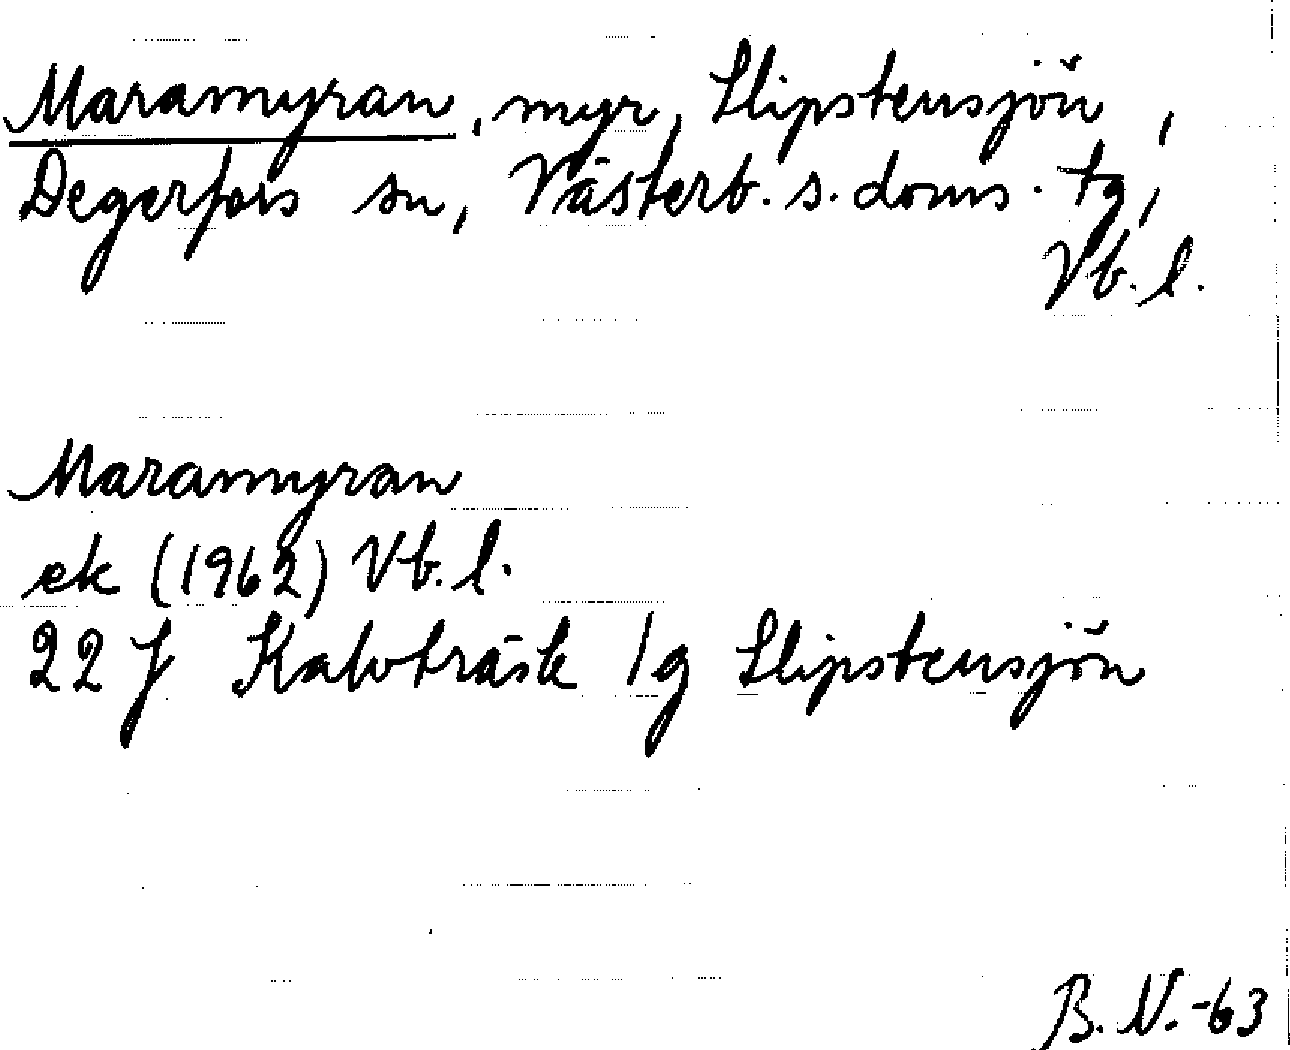 Maramyran, myr, Slipstensjön,
Degerfors sn, Västerb. s. doms. tg,
Vb. l.
Maramyran
ek (1962) Vb. l.
22 J Kalvträsk 1g Slipstensjön
B. N. -63